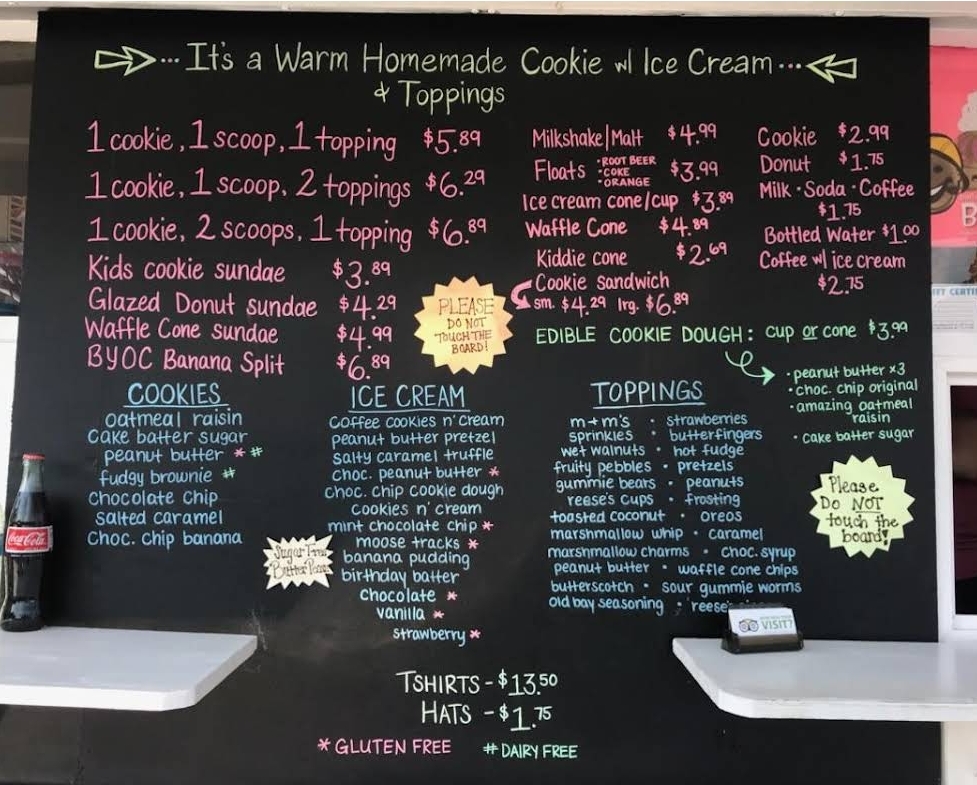 It's a Warm Homemade Cookie w/ Ice Cream
& Toppings
1 cookie, 1 scoop, 1 topping $5.89
1 cookie, 1 scoop, 2 toppings $6.29
1 cookie, 2 scoops, 1 topping $6.89
Kids cookie sundae $3.89
Glazed Donut sundae $4.29
Waffle Cone sundae $4.99
BYOC Banana Split $6.89
PLEASE
DO NOT
TOUCH THE
BOARD!
Milkshake/Malt $4.99
Floats :ROOT BEER
:COKE
:ORANGE
$3.99
Ice cream cone/cup $3.89
Waffle Cone $4.89
Kiddie cone $2.69
Cookie Sandwich
sm. $4.29 lrg. $6.89
Cookie $2.99
Donut $1.75
Milk · Soda · Coffee
$1.75
Bottled Water $1.00
Coffee w/ ice cream
$2.75
EDIBLE COOKIE DOUGH: cup or cone $3.99
· peanut butter x3
· choc. chip original
· amazing oatmeal
raisin
· cake batter sugar
COOKIES
oatmeal raisin
cake batter sugar
peanut butter * #
fudgy brownie #
chocolate chip
salted caramel
choc. chip banana
ICE CREAM
coffee cookies n' cream
peanut butter pretzel
salty caramel truffle
choc. peanut butter *
choc. chip cookie dough
cookies n' cream
mint chocolate chip *
moose tracks *
banana pudding
birthday batter
chocolate *
vanilla *
strawberry *
Sugar Free
Butter
TOPPINGS
m+m's · strawberries
sprinkles · butterfingers
wet walnuts · hot fudge
fruity pebbles · pretzels
gummie bears · peanuts
reese's cups · frosting
toasted coconut · oreos
marshmallow whip · caramel
marshmallow charms · choc. syrup
peanut butter · waffle cone chips
butterscotch · sour gummie worms
old bay seasoning · reese's
Please
Do NOT
touch the
board!
Coca-Cola
VISIT?
TSHIRTS - $13.50
HATS - $1.75
* GLUTEN FREE # DAIRY FREE